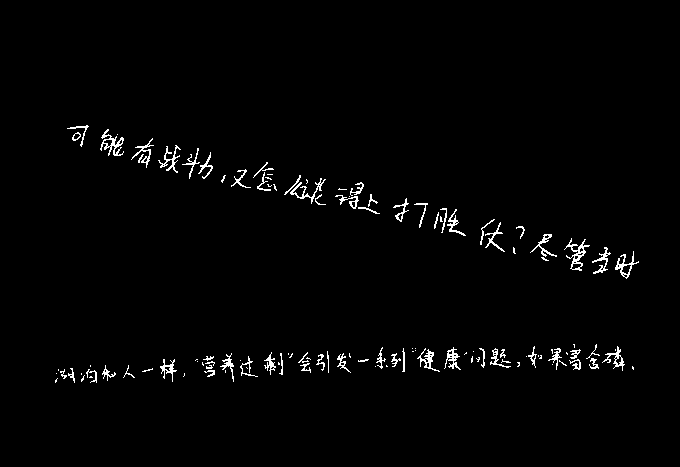 可能有战斗力,又怎么谈得上打胜仗?尽管当时
湖泊和人一样,“营养过剩”会引发一系列“健康”问题,如果富含磷、